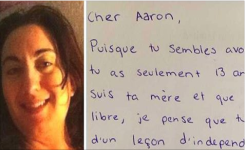 Cher Aaron,
Puisque tu sembles avo
tu as seulement 13 an
suis ta mère et que
libre, je pense que t
d'un leçon d'indepen